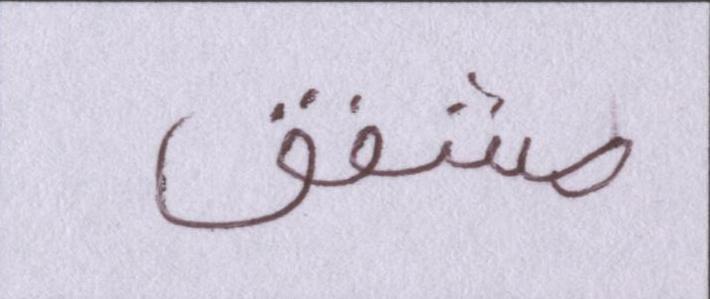 مشفق